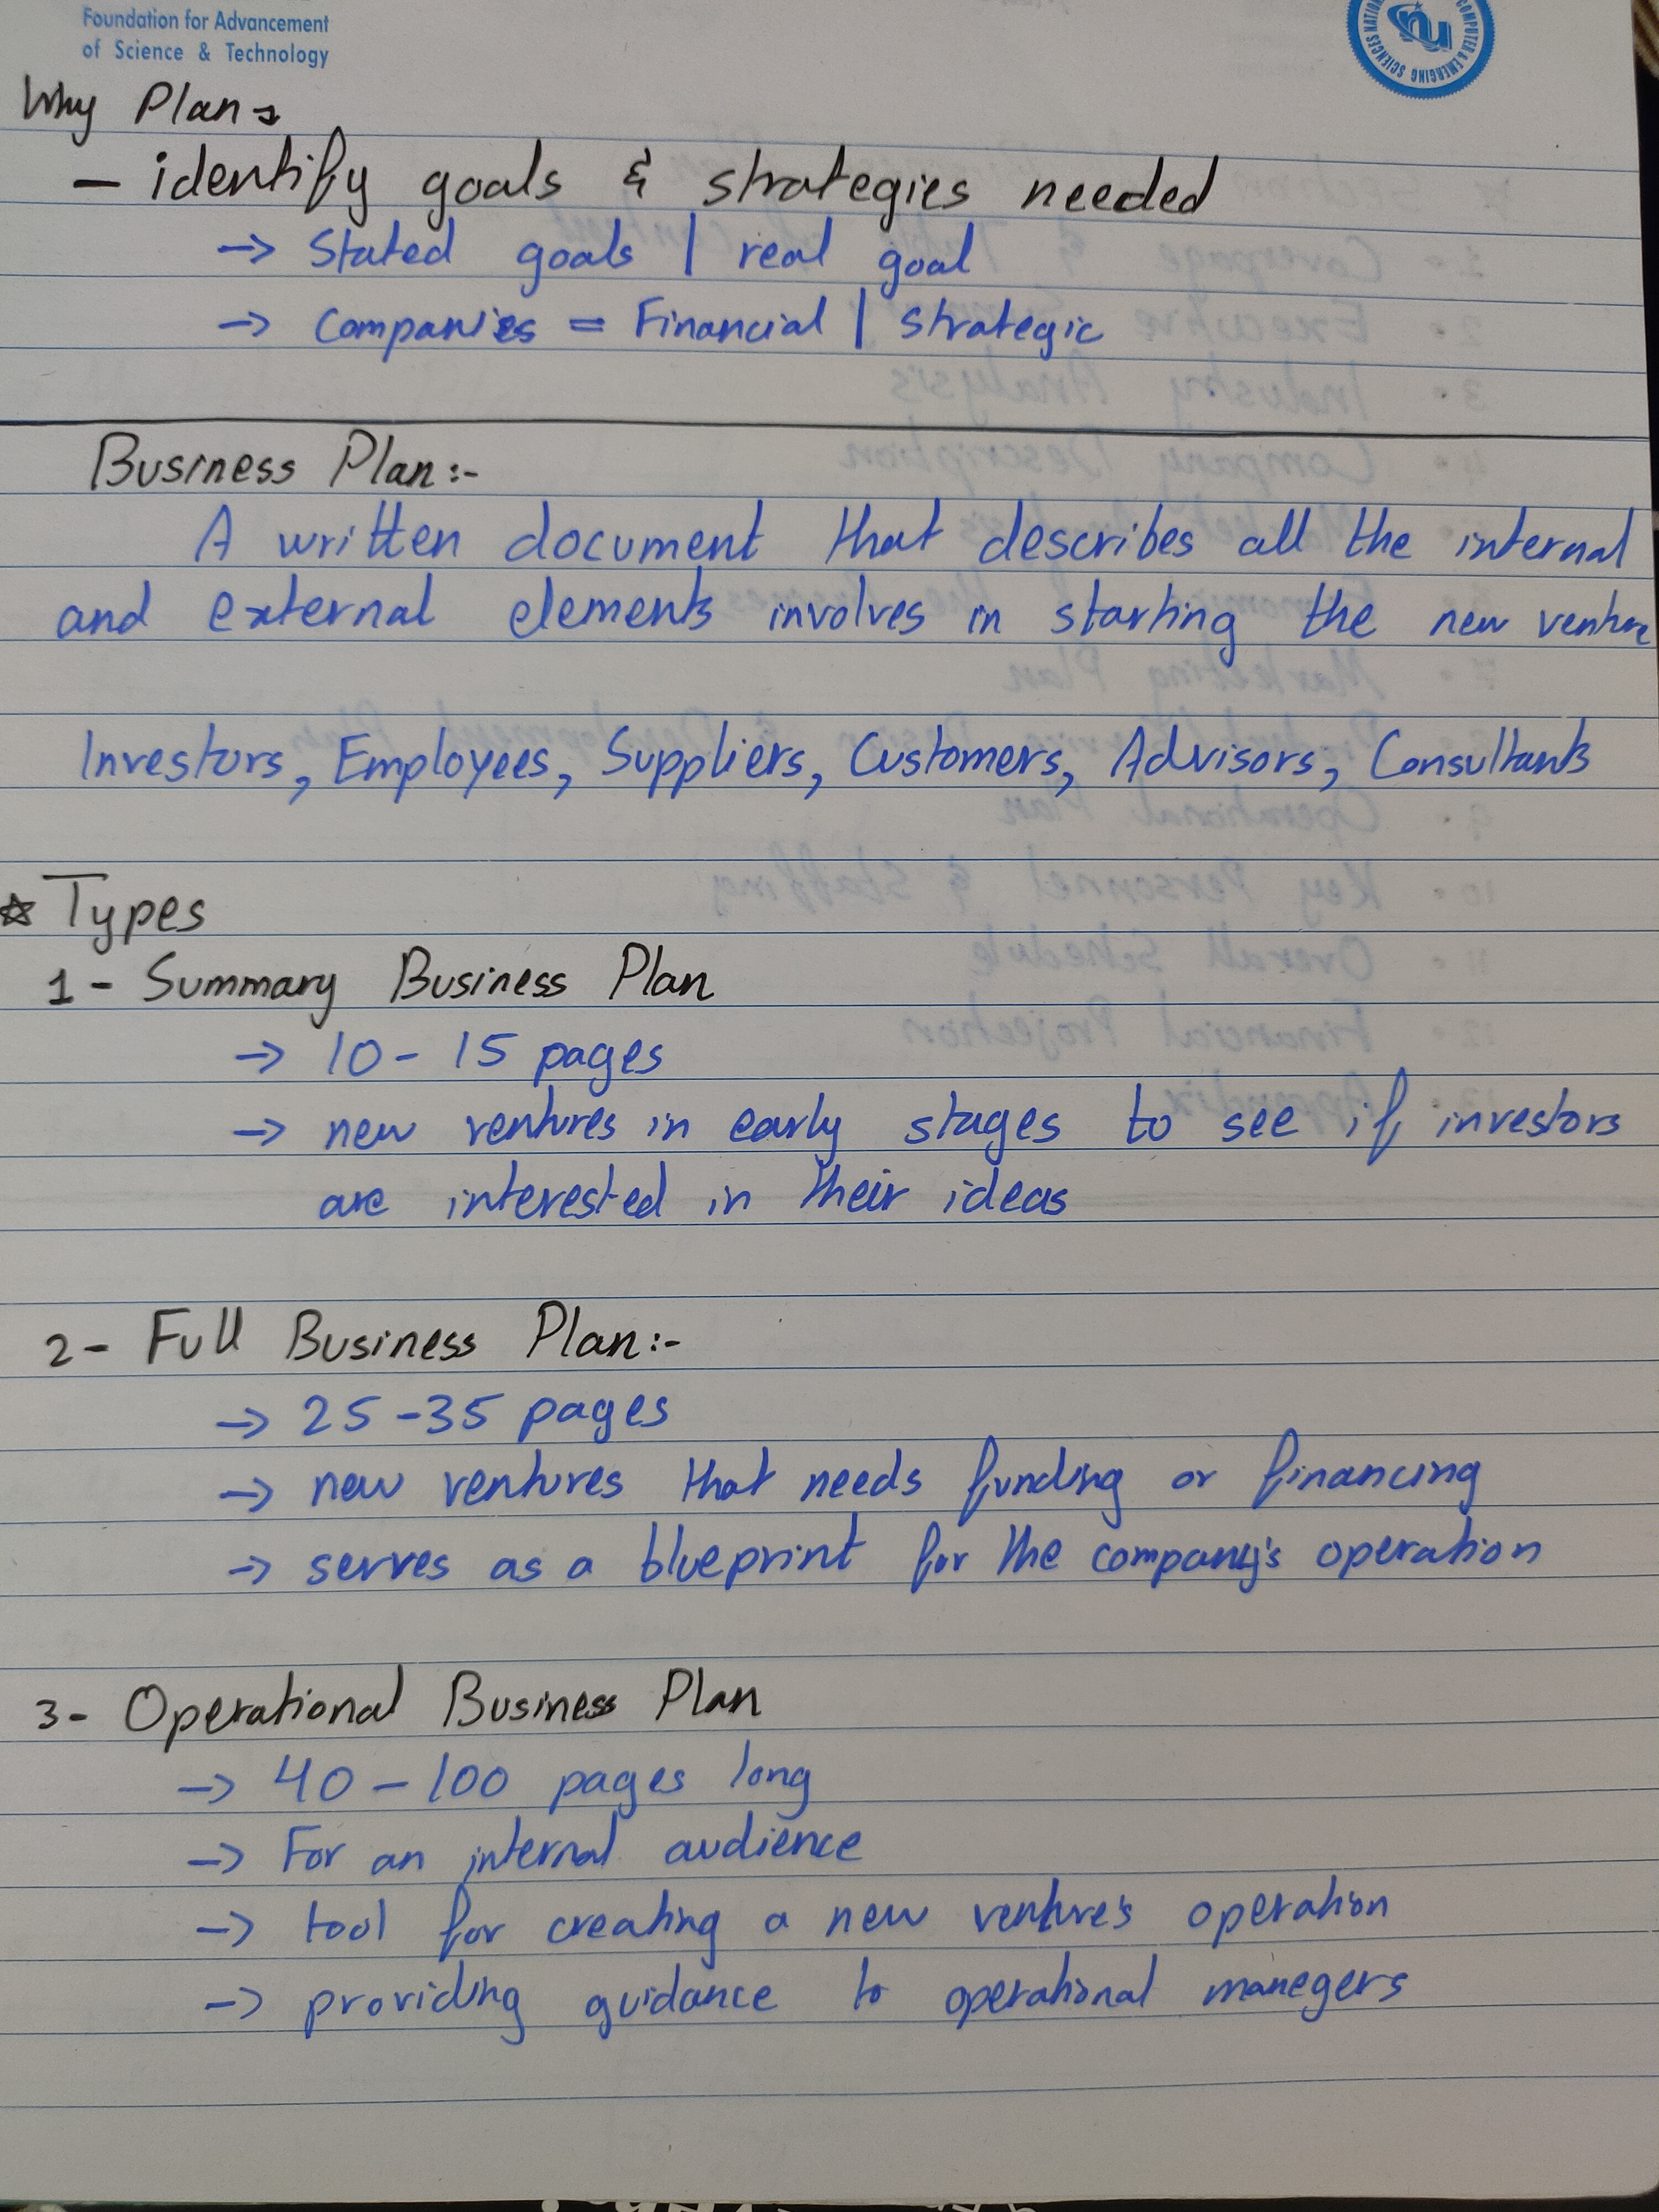 Foundation for Advancement
of Science & Technology
Why Plan →
- identify goals & strategies needed
→ Stated goals | real goal
→ Companies = Financial | strategic
Business Plan:-
A written document that describes all the internal
and external elements involves in starting the new venture
Investors, Employees, Suppliers, Customers, Advisors, Consultants
☆ Types
1- Summary Business Plan
→ 10-15 pages
→ new ventures in early stages to see if investors
are interested in their ideas
2- Full Business Plan:-
→ 25-35 pages
→ new ventures that needs funding or financing
→ serves as a blueprint for the company's operation
3- Operational Business Plan
→ 40-100 pages long
→ For an internal audience
→ tool for creating a new venture's operation
→ providing guidance to operational manegers